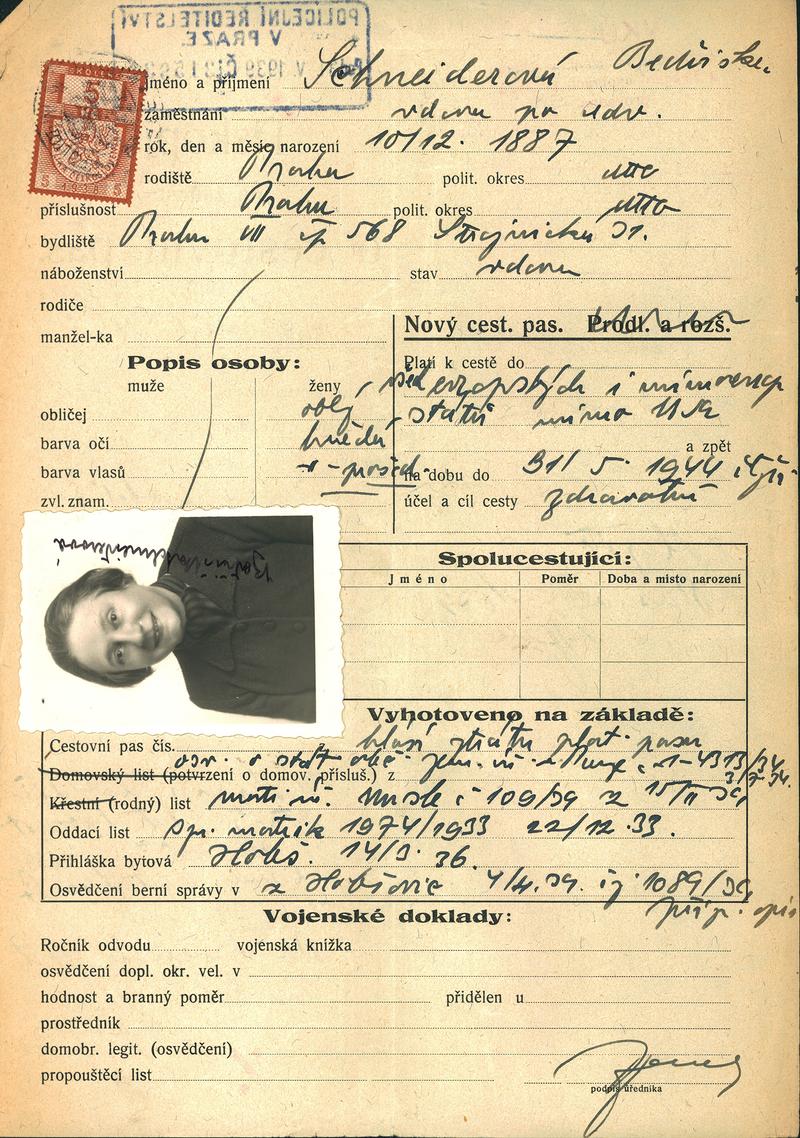 POLICEJNÍ ŘEDITELSTVÍ
V PRAZE
V. 1939
KOLEK
5
5 1938 5
jméno a příjmení Schneiderová Bedřiška
zaměstnání vdova po adv.
rok, den a měsíc narození 10/12. 1887
rodiště Praha polit. okres dtto
příslušnost Praha polit. okres dtto
bydliště Praha VII čp 568 Strojnická 31.
náboženství stav vdova
rodiče
manžel-ka
Nový cest. pas. Prodl. a rozš.
Popis osoby:
muže ženy
obličej oblý
barva očí hnědé
barva vlasů prošed.
zvl. znam.
Platí k cestě do všech evropských i mimoevrop
států mimo
a zpět
na dobu do 31/5. 1944
účel a cíl cesty zdravotní
Bedřiška Schneiderová
Spolucestující:
Jméno Poměr Doba a místo narození
Vyhotoveno na základě:
Cestovní pas čís. hlásí ztrátu plat. pasu
Domovský list (potvrzení o domov. přísluš.) z osv. o stát. 1-4313/34
Křestní (rodný) list č 109/39 z 15/II 39
Oddací list Opi. matrik 1974/1933 22/12.33.
Přihláška bytová Holeš. 14/9. 36.
Osvědčení berní správy v z Holešovic 4/4.39. čj 1089/39
příp. opis
Vojenské doklady:
Ročník odvodu vojenská knížka
osvědčení dopl. okr. vel. v
hodnost a branný poměr přidělen u
prostředník
domobr. legit. (osvědčení)
propouštěcí list
podpis úředníka